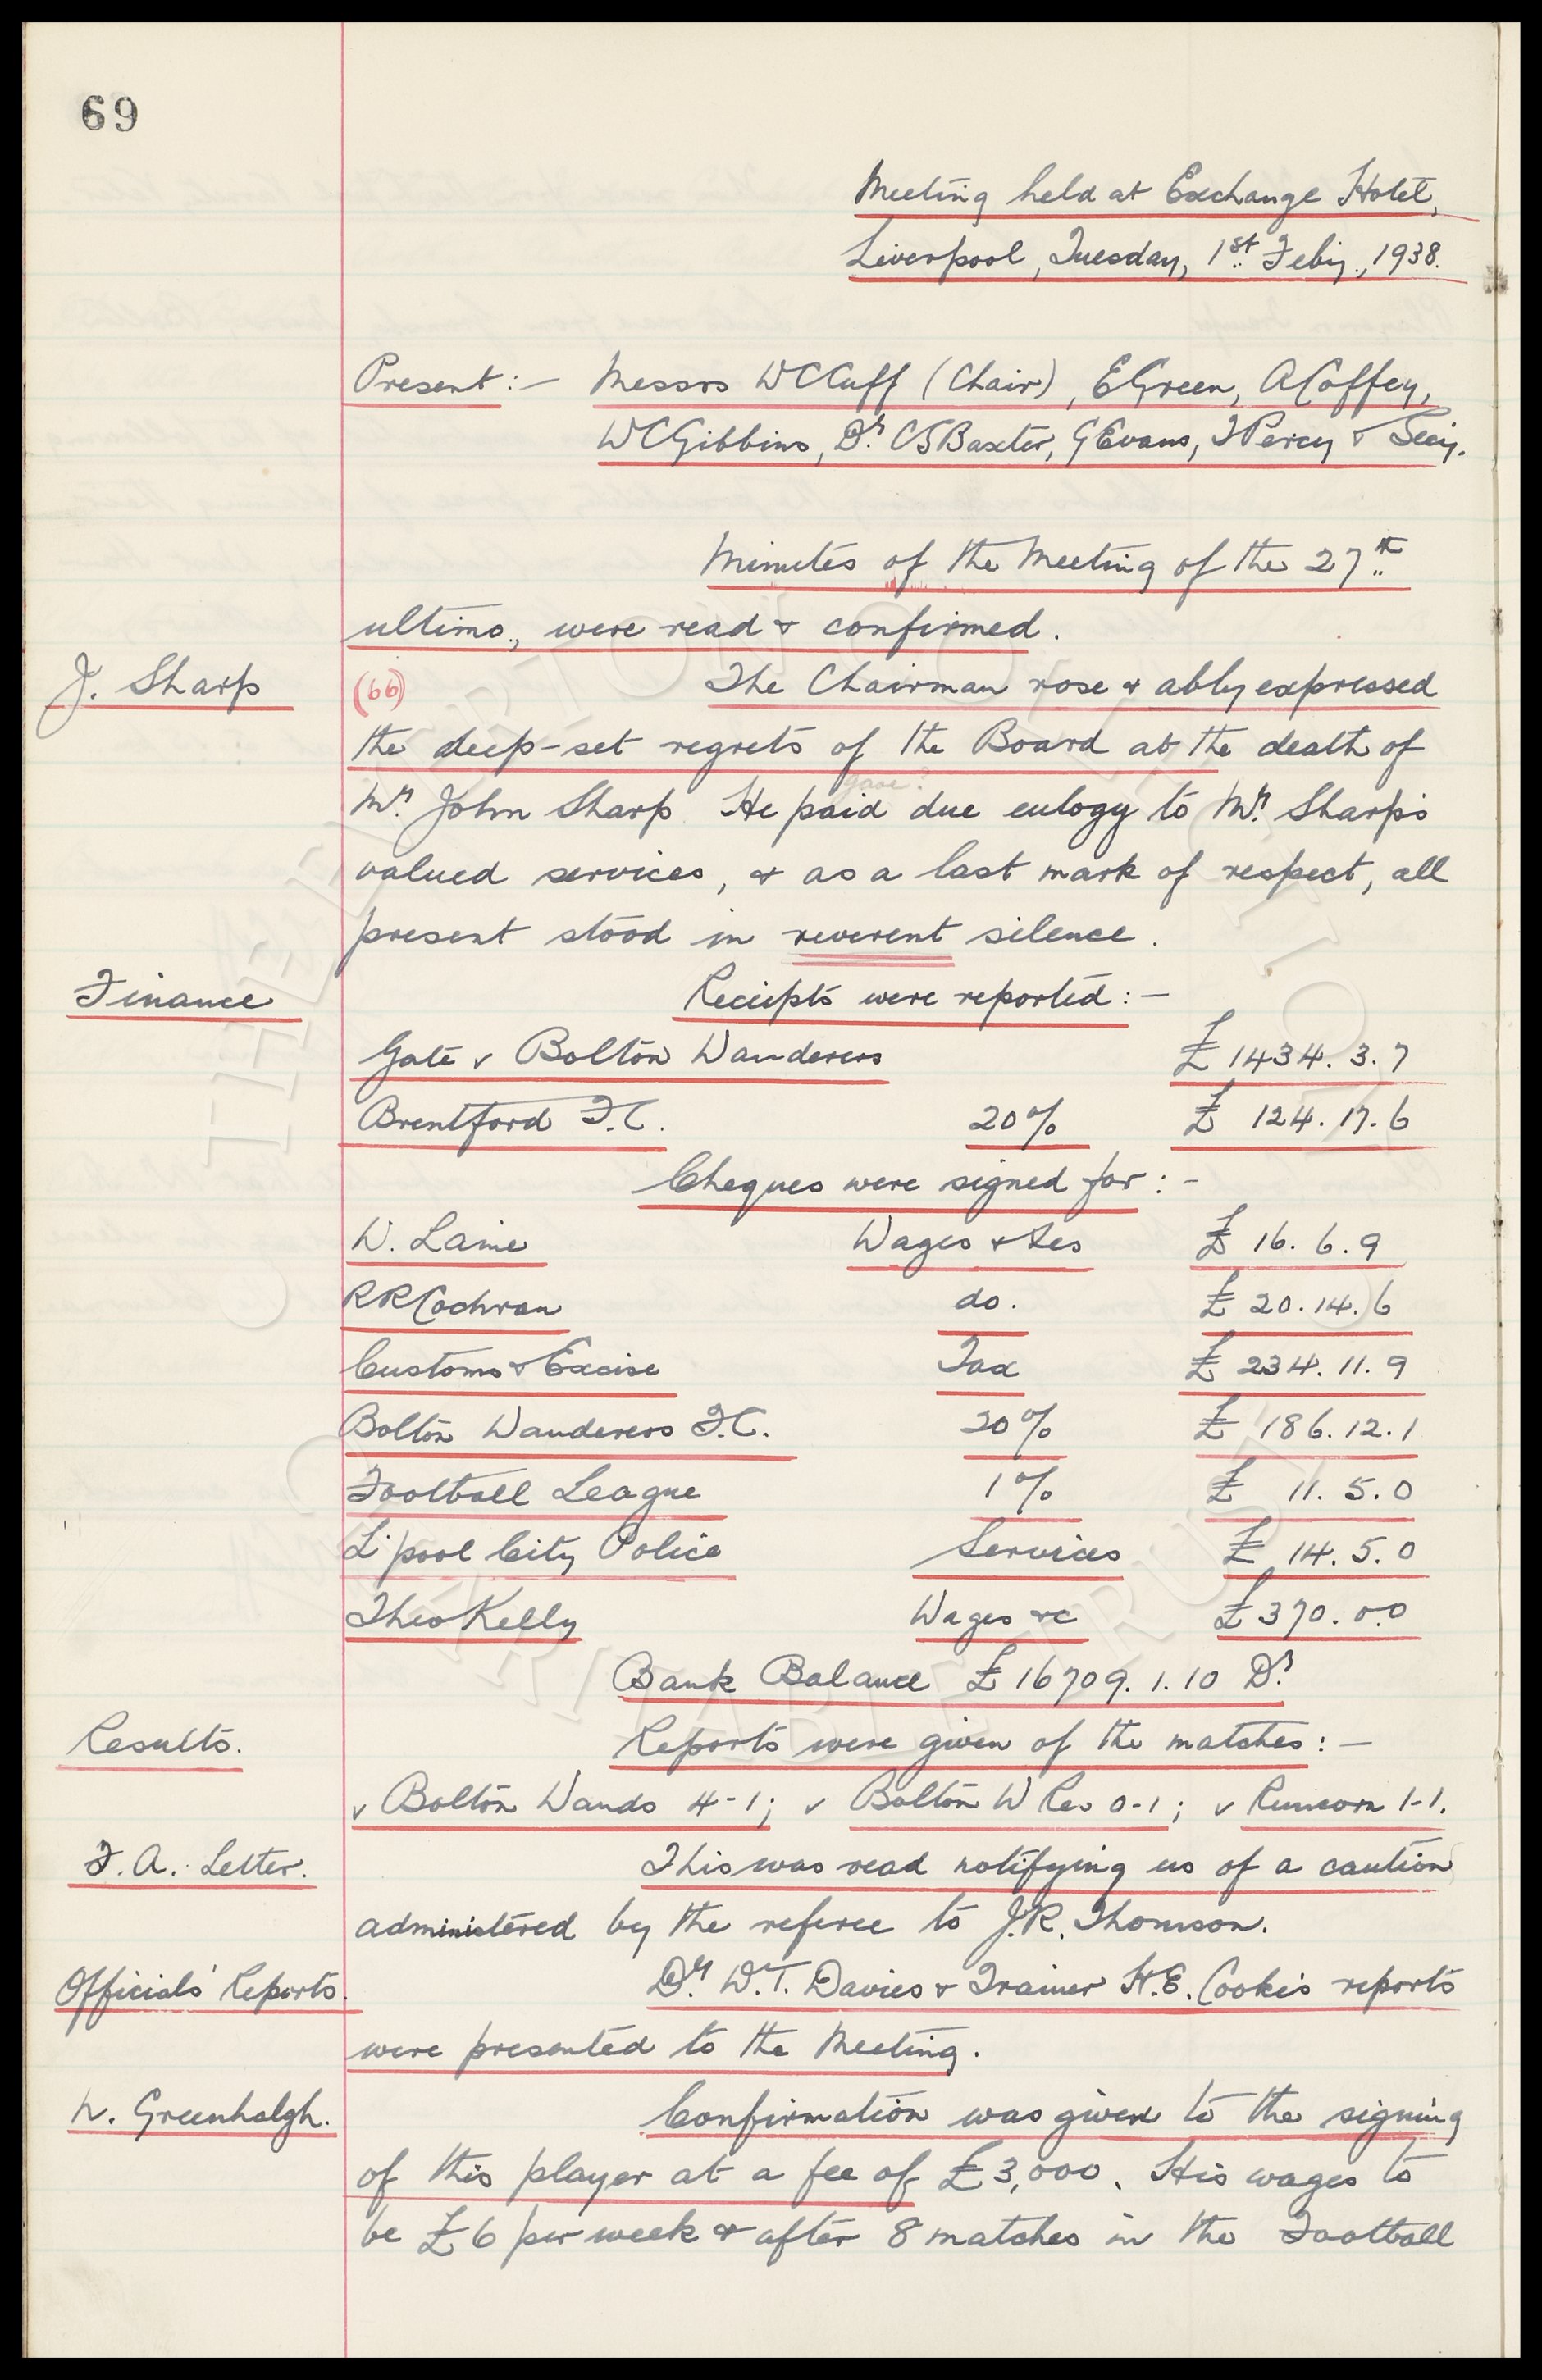 69
Meeting held at Exchange Hotel,
Liverpool, Tuesday, 1st Feby., 1938.
Present:- Messrs WCCuff (Chair), EGreen, ACoffey,
WCGibbins, Dr. CSBaxter, GEvans, TPercy & Secy.
Minutes of the Meeting of the 27th
ultimo., were read & confirmed.
J. Sharp (66) The Chairman rose & ably expressed
the deep-set regrets of the Board at the death of
gave?
Mr. John Sharp. He paid due eulogy to Mr. Sharp's
valued services, & as a last mark of respect, all
present stood in reverent silence.
Finance Receipts were reported:-
Gate v Bolton Wanderers £1434.3.7
Brentford F.C. 20% £ 124.17.6
Cheques were signed for:-
W. Laine Wages & Tes £ 16.6.9
RRCochran do. £ 20.14.6
Customs & Excise Tax £ 234.11.9
Bolton Wanderers F.C. 20% £ 186.12.1
Football League 1% £ 11.5.0
L'pool City Police Services £ 14.5.0
Theo Kelly Wages &c £370.0.0
Bank Balance £16709.1.10 Dr.
Results. Reports were given of the matches:-
v Bolton Wands 4-1; v Bolton W Res 0-1; v Runcorn 1-1.
F.A. Letter. This was read notifying us of a caution
administered by the referee to J.R. Thomson.
Officials' Reports. Dr. W.T. Davies & Trainer H.E. Cooke's reports
were presented to the Meeting.
N. Greenhalgh. Confirmation was given to the signing
of this player at a fee of £3,000. His wages to
be £6 per week & after 8 matches in the Football